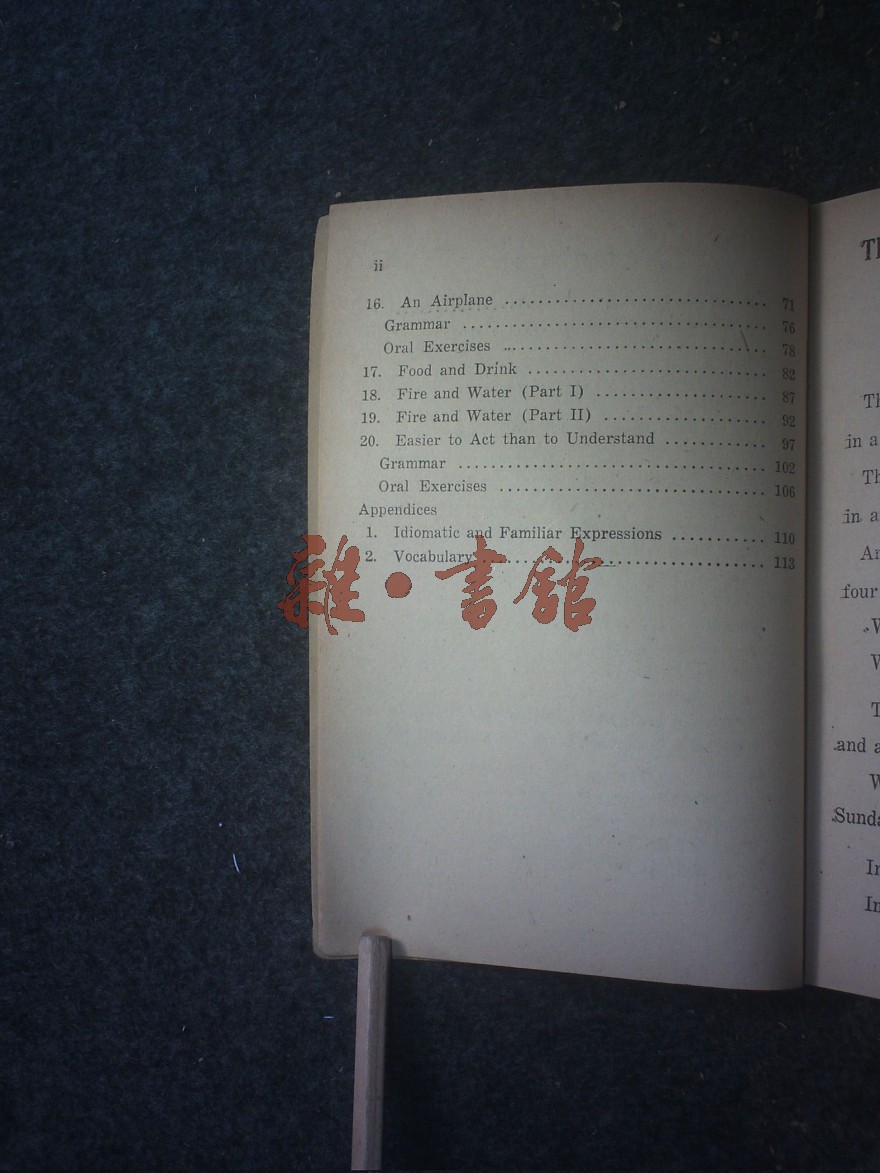 ii
16. An Airplane .............................. 71
Grammar .................................. 76
Oral Exercises .............................. 78
17. Food and Drink ........................... 82
18. Fire and Water (Part I) .................... 87
19. Fire and Water (Part II) ................... 92
20. Easier to Act than to Understand ........... 97
Grammar .................................. 102
Oral Exercises .............................. 106
Appendices
1. Idiomatic and Familiar Expressions .......... 110
2. Vocabulary .............................. 113
雜·書館
in a
in a
four
and a
In
In